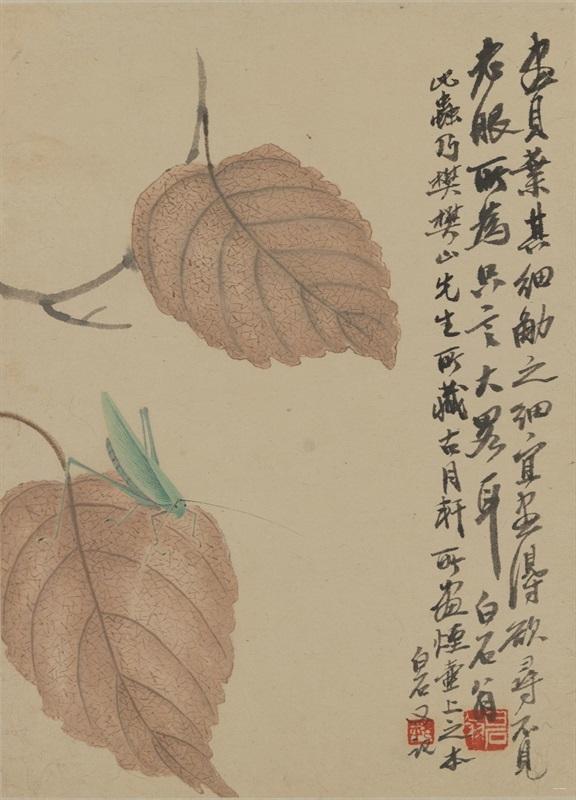 畫貝葉其細觔之細宜畫得欲尋不見
老眼所為只言大畧耳 白石翁
此蟲乃樊樊山先生所藏古月軒所畫煙壷上之本
白石又記